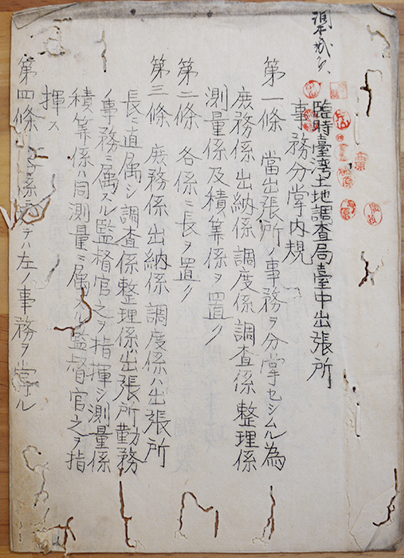 臨時臺湾土地調査局臺中出張所
事務分掌内規
第一條 當出張所ノ事務ヲ分掌セシムル為
庶務係出納係調度係調査係整理係
測量係及積算係ヲ置ク
第二條 各係ニ長ヲ置ク
第三條 庶務係出納係調度係ハ出張所
長ニ直属シ調査係整理係ハ出張所勤務
ノ事務ニ属スル監督官之ヲ指揮シ測量係
積算係ハ同測量ニ属スル監督官之ヲ指
揮ス
第四條 係ニ テハ左ノ事務ヲ掌ル